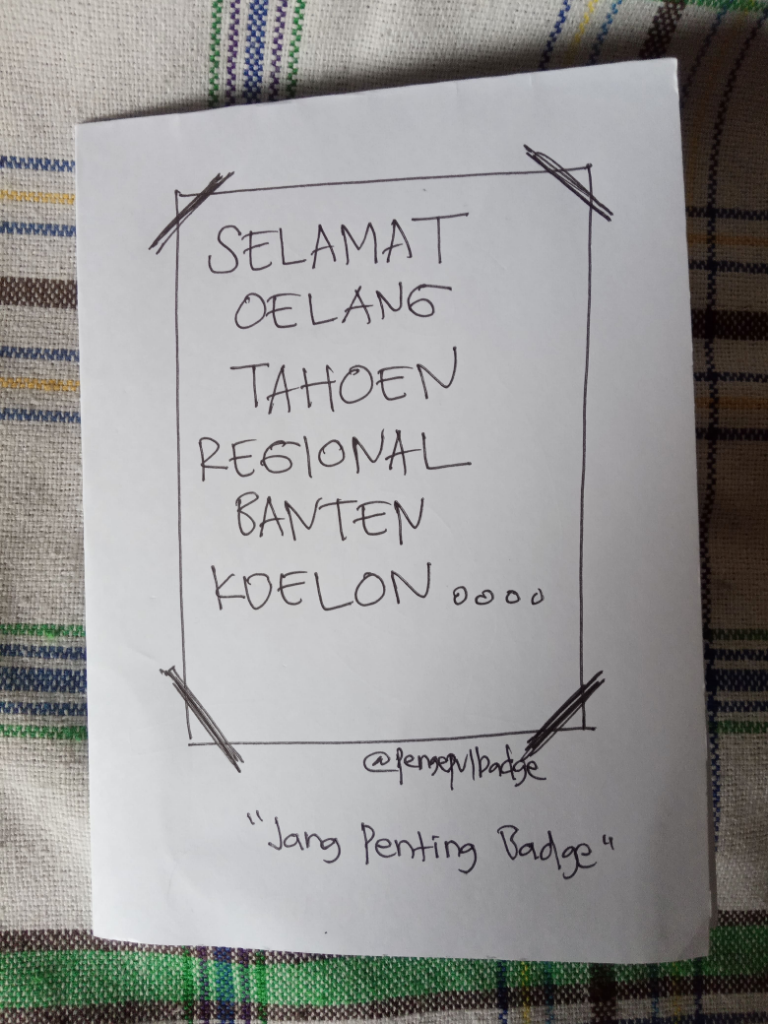 SELAMAT
OELANG
TAHOEN
REGIONAL
BANTEN
KOELON....
@pengepulbadge
"Jang Penting Badge"